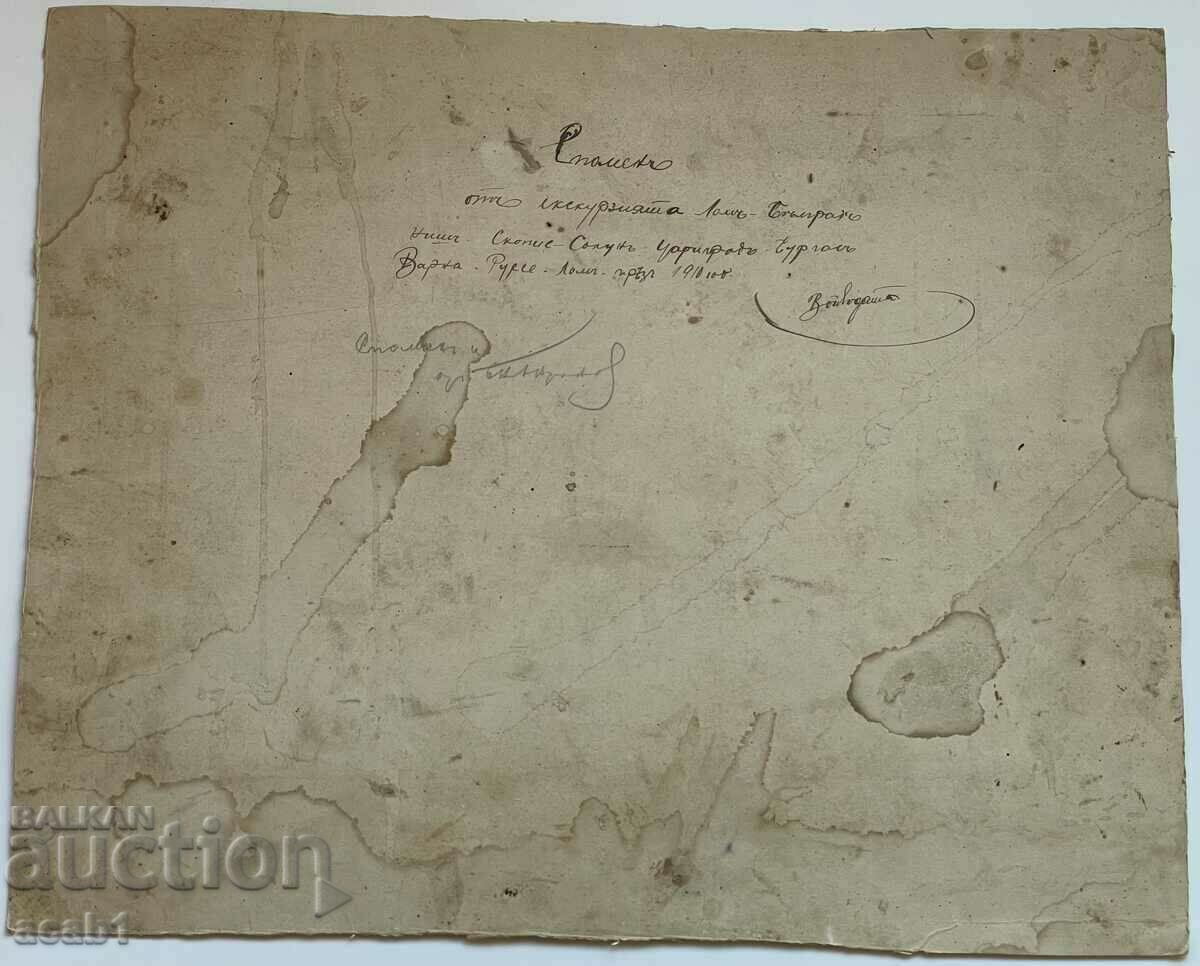 Споменъ
отъ екскурзията Ломъ - Бѣлградъ
Нишъ - Скопие - Солунъ - Цариградъ - Бургасъ
Варна - Русе - Ломъ - прѣзъ 1910 год.
Войводата
Споменъ
BALKAN
auction
acab1